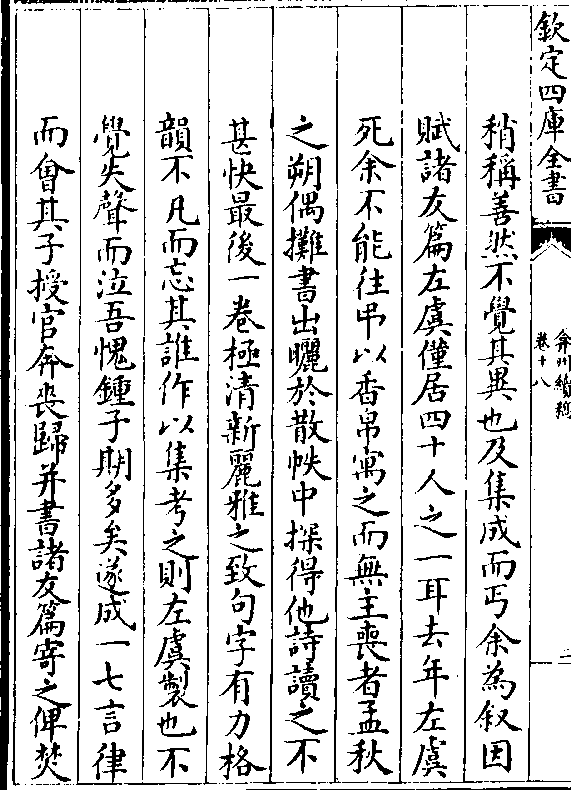 欽定四庫全書
弇州續稿
卷十八
二
稍稱善然不覺其異也及集成而丐余為叙因
賦諸友篇左虞僅居四十人之一耳去年左虞
死余不能往弔以香帛寓之而無主喪者孟秋
之朔偶攤書出曬於散帙中探得他詩讀之不
甚快最後一卷極清新麗雅之致句字有力格
韻不凡而忘其誰作以集考之則左虞製也不
覺失聲而泣吾愧鍾子期多矣遂成一七言律
而會其子授官奔喪歸并書諸友篇寄之俾焚